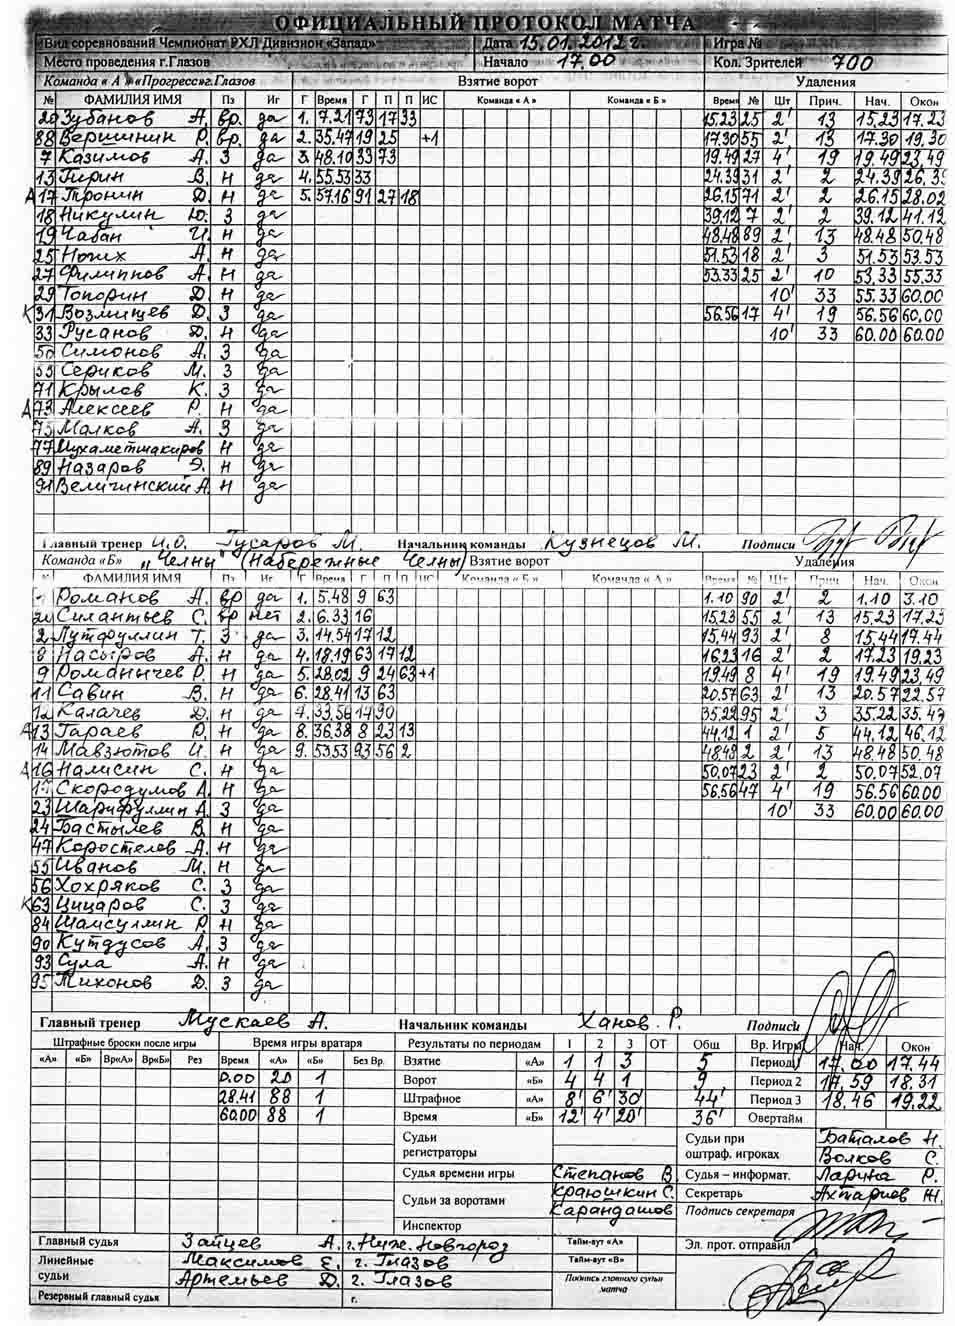 ОФИЦИАЛЬНЫЙ ПРОТОКОЛ МАТЧА
Вид соревнований Чемпионат РХЛ Дивизион «Запад» Дата 15.01.2012 г. Игра №
Место проведения г.Глазов Начало 17.00 Кол. Зрителей 700
Команда « А » «Прогресс»г.Глазов Взятие ворот Удаления
№ ФАМИЛИЯ ИМЯ Пз Иг Г Время Г П П ИС Команда « А » Команда « Б » Время № Шт Прич. Нач. Окон
20 Зубанов А. вр. да 1. 7.21 73 17 33 15.23 25 2' 13 15.23 17.23
88 Вершинин Р. вр. да 2. 35.47 19 25 +1 17.30 55 2' 13 17.30 19.30
7 Казимов А. З да 3. 48.10 33 73 19.49 27 4' 19 19.49 23.49
13 Гирин В. Н да 4. 55.53 33 24.39 31 2' 2 24.39 26.39
А 17 Тронин Д. Н да 5. 57.16 91 27 18 26.15 71 2' 2 26.15 28.02
18 Никулин Ю. З да 39.12 7 2' 2 39.12 41.12
19 Чабан И. Н да 48.48 89 2' 13 48.48 50.48
25 Ногих А. Н да 51.53 18 2' 3 51.53 53.53
27 Филиппов А. Н да 53.33 25 2' 10 53.33 55.33
29 Топорин Д. Н да 10' 33 55.33 60.00
К 31 Возмищев Д. З да 56.56 17 4' 19 56.56 60.00
33 Русанов Д. Н да 10' 33 60.00 60.00
50 Симонов А. З да
55 Сериков М. З да
71 Крылов К. З да
А 73 Алексеев Р. Н да
75 Малков А. З да
77 Мухаметшакиров Н да
89 Назаров Э. Н да
91 Величинский А. Н да
Главный тренер И.О. Гусаров М. Начальник команды Кузнецов М. Подписи
Команда «Б» „Челны" (Набережные Челны) Взятие ворот Удаления
ФАМИЛИЯ ИМЯ Пз Иг Г Время Г П П ИС Команда « Б » Команда « А » Время № Шт Прич Нач. Окон
1 Романов А. вр да 1. 5.48 9 63 1.10 90 2' 2 1.10 3.10
20 Силантьев С. вр нет 2. 6.33 16 15.23 55 2' 13 15.23 17.23
2 Лутфуллин Т. З да 3. 14.54 17 12 15.44 93 2' 8 15.44 17.44
8 Насыров А. Н да 4. 18.19 63 17 12 16.23 16 2' 2 17.23 19.23
9 Романычев Р. Н да 5. 28.02 9 24 63 +1 19.49 8 4' 19 19.49 23.49
11 Савин В. Н да 6. 28.41 13 63 20.57 63 2' 13 20.57 22.57
12 Калачев Д. Н да 7. 33.56 17 90 35.22 95 2' 3 35.22 35.47
А 13 Гараев Р. Н да 8. 36.38 8 23 13 44.12 1 2' 5 44.12 46.12
14 Мавзютов И. Н да 9. 53.53 93 56 2 48.48 2 2' 13 48.48 50.48
А 16 Налисин С. Н да 50.07 23 2' 2 50.07 52.07
17 Скородумов А. Н да 56.56 47 4' 19 56.56 60.00
23 Шарифуллин А. З да 10' 33 60.00 60.00
24 Бастылев В. Н да
47 Коростелев А. Н да
55 Иванов М. Н да
56 Хохряков С. З да
К 63 Цицаров С. З да
84 Шамсуллин Р. Н да
90 Кутдусов А. З да
93 Сула А. Н да
95 Тихонов Д. З да
Главный тренер Мускаев А. Начальник команды Ханов Р. Подписи
Штрафные броски после игры Время игры вратаря Результаты по периодам 1 2 3 ОТ Общ Вр. Игры Нач. Окон
«А» «Б» Вр«А» Вр«Б» Рез Время «А» «Б» Без Вр. Взятие «А» 1 1 3 5 Период 1 17.00 17.44
0.00 20 1 Ворот «Б» 4 4 1 9 Период 2 17.59 18.31
28.41 88 1 Штрафное «А» 8' 6' 30' 44' Период 3 18.46 19.22
60.00 88 1 Время «Б» 12' 4' 20' 36' Овертайм
Судьи регистраторы Судьи при оштраф. игроках Баталов Н. Волков С.
Судья времени игры Степанов В. Судья – информат. Ларина Р.
Судьи за воротами Краюшкин С. Карандашов Секретарь Ахтариев Ж.
Инспектор Подпись секретаря
Главный судья Зайцев А. г. Ниж. Новгород Тайм-аут «А» Эл. прот. отправил
Линейные судьи Максимов Е. г. Глазов Тайм-аут «В»
Артемьев Д. г. Глазов Подпись главного судьи матча
Резервный главный судья г.